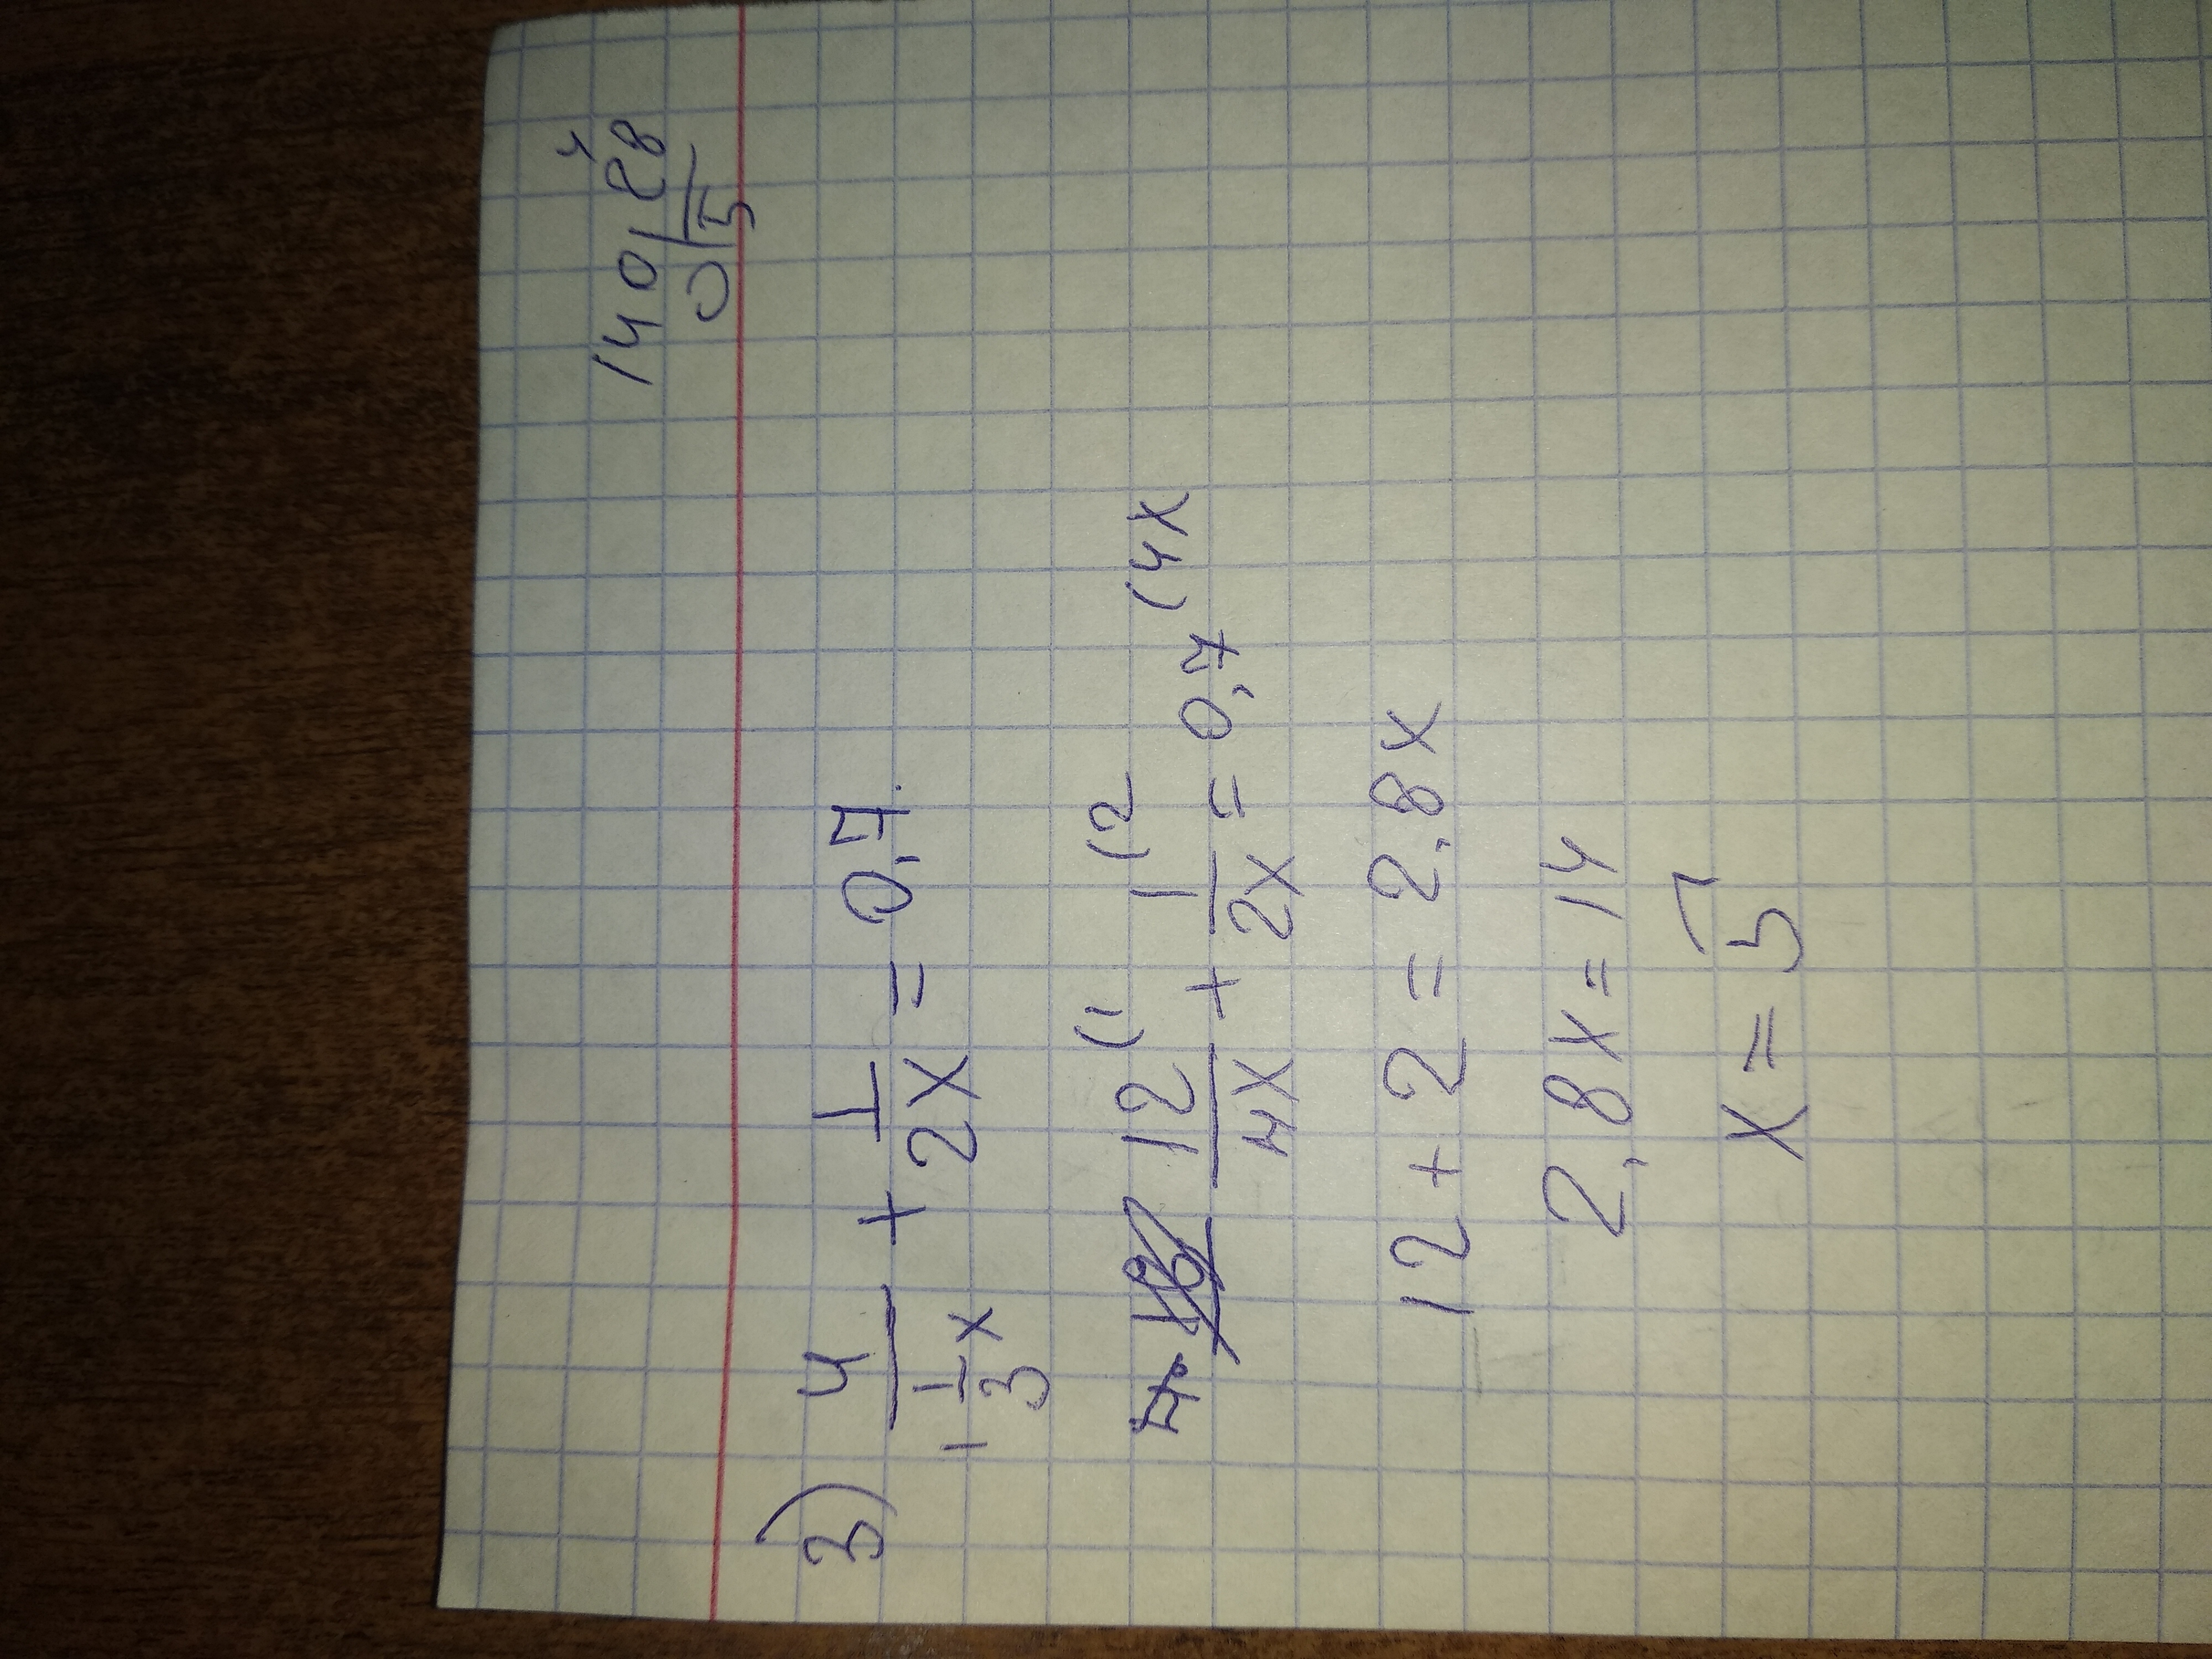 140 | 28
0 | 5
4
3) 4/(1 1/3 x) + 1/(2x) = 0,7.
12/(4x) (1 + 1/(2x) (2 = 0,7 (4x
12 + 2 = 2,8x
2,8x = 14
x = 5